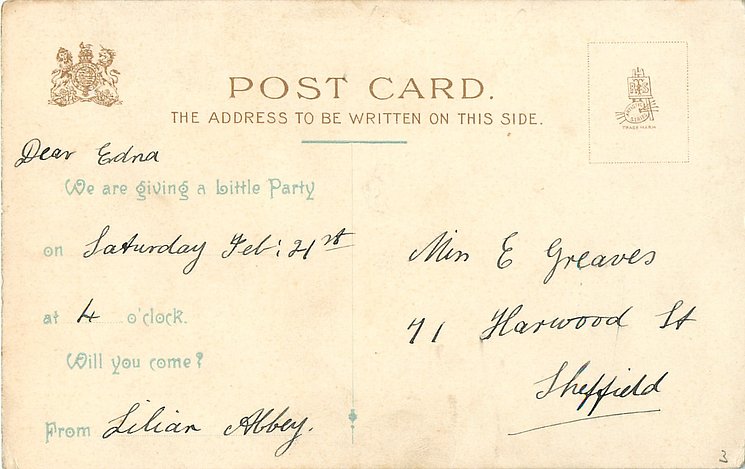 POST CARD.
THE ADDRESS TO BE WRITTEN ON THIS SIDE.
TRADE MARK
Dear Edna
We are giving a Little Party
on Saturday Feb: 21st
at 4 o'clock.
Will you come?
From Lilian Abbey.
Miss E Greaves
71 Harwood St
Sheffield
3